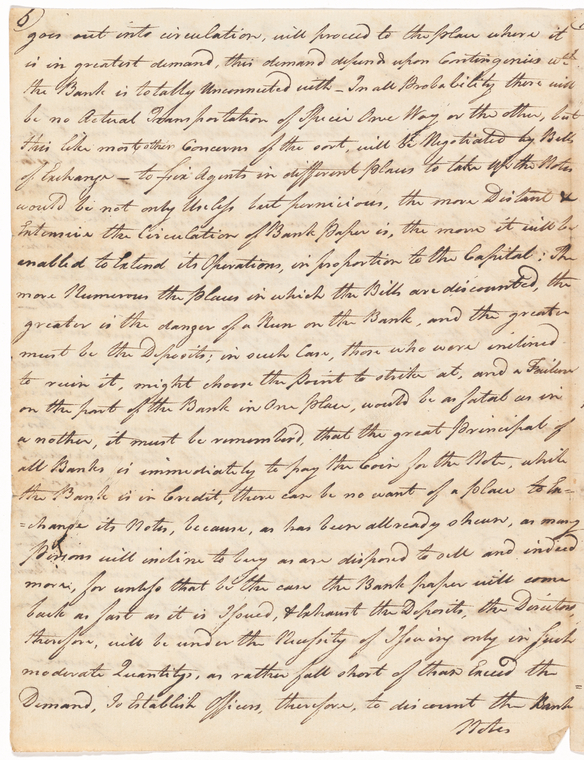 6)
goes out into circulation, will proceed to the place where it
is in greatest demand, this demand depends upon Contingencies wth
the Bank is totally Unconnected with – In all Probability there will
be no Actual Transportation of Specie One Way or the other, but
this like most other Concerns of the sort, will be Negotiated by Bills
of Exchange – to fix Agents in different places to take up the Notes
would be not only Useless but pernicious, the more Distant &
Extensive the Circulation of Bank Paper is, the more it will be
enabled to Extend its Operations, in proportion to the Capital: The
more Numerous the places in which the Bills are discounted, the
greater is the danger of a Run on the Bank, and the greater
must be the Deposits; in such Case, those who were inclined
to ruin it, might choose the point to strike at, and a Failure
on the part of the Bank in One place, would be as fatal as in
a nother, it must be rememberd, that the great Principal of
all Banks is immediately to pay the Coin for the Note, while
the Bank is in Credit, there can be no want of a place to Ex-
=change its Notes, because, as has been allready shewn, as many
Persons will incline to buy as are disposed to sell and indeed
more, for unless that be the case the Bank paper will come
back as fast as it is Issued, & Exhaust the Deposits, the Directors,
therefore, will be under the Necessity of Issueing only in such
moderate Quantitys, as rather fall short of than Exceed the
Demand, To Establish Officers, therefore, to discount the Bank
Notes